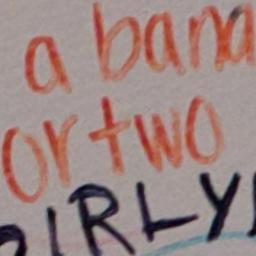 a bana
or two
IRLY